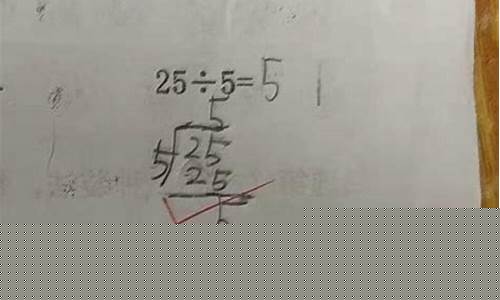 25÷5=5
5
5 25
25
5